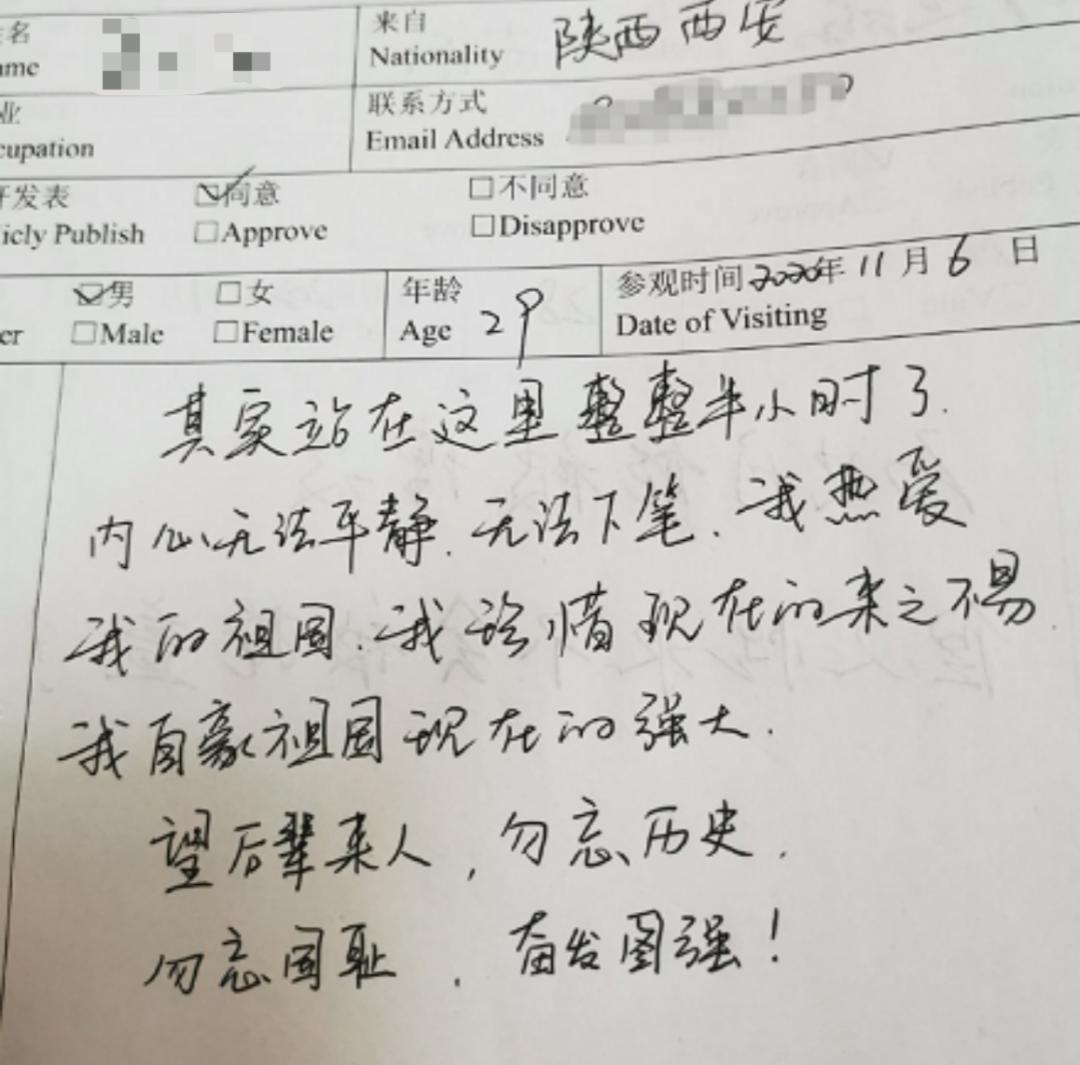 名 来自 陕西西安
me Nationality
业 联系方式
cupation Email Address
开发表 同意 不同意
icly Publish Approve Disapprove
男 女 年龄 29 参观时间 2020年 11月 6日
er Male Female Age Date of Visiting
其实站在这里整整半小时了.
内心无法平静.无法下笔.我热爱
我的祖国.我珍惜现在的来之不易
我自豪祖国现在的强大.
望后辈来人,勿忘历史.
勿忘国耻.奋发图强!